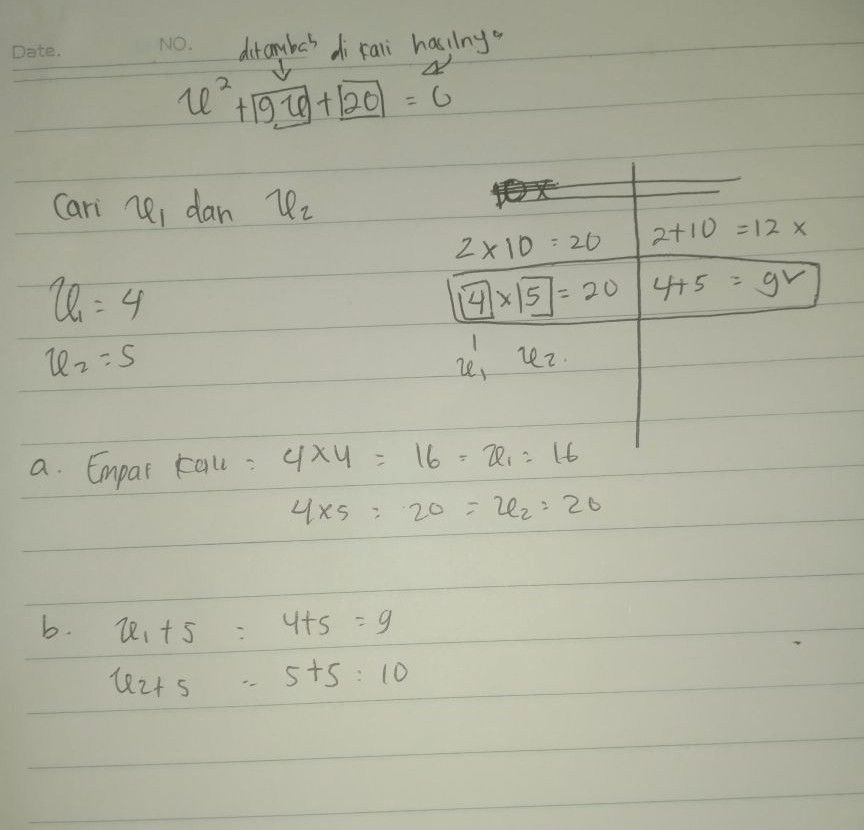 Date.
NO.
ditambah di kali hasilnya
x² + 9x + 20 = 0
Cari x₁ dan x₂
2 x 10 = 20 2+10 = 12 x
4 x 5 = 20 4+5 = 9 ✓
x₁ = 4
x₂ = 5
x₁ x₂.
a. Empat kali = 4x4 = 16 = x₁ = 16
4x5 = 20 = x₂ = 20
b. x₁ + 5 = 4+5 = 9
x₂ + 5 = 5+5 = 10